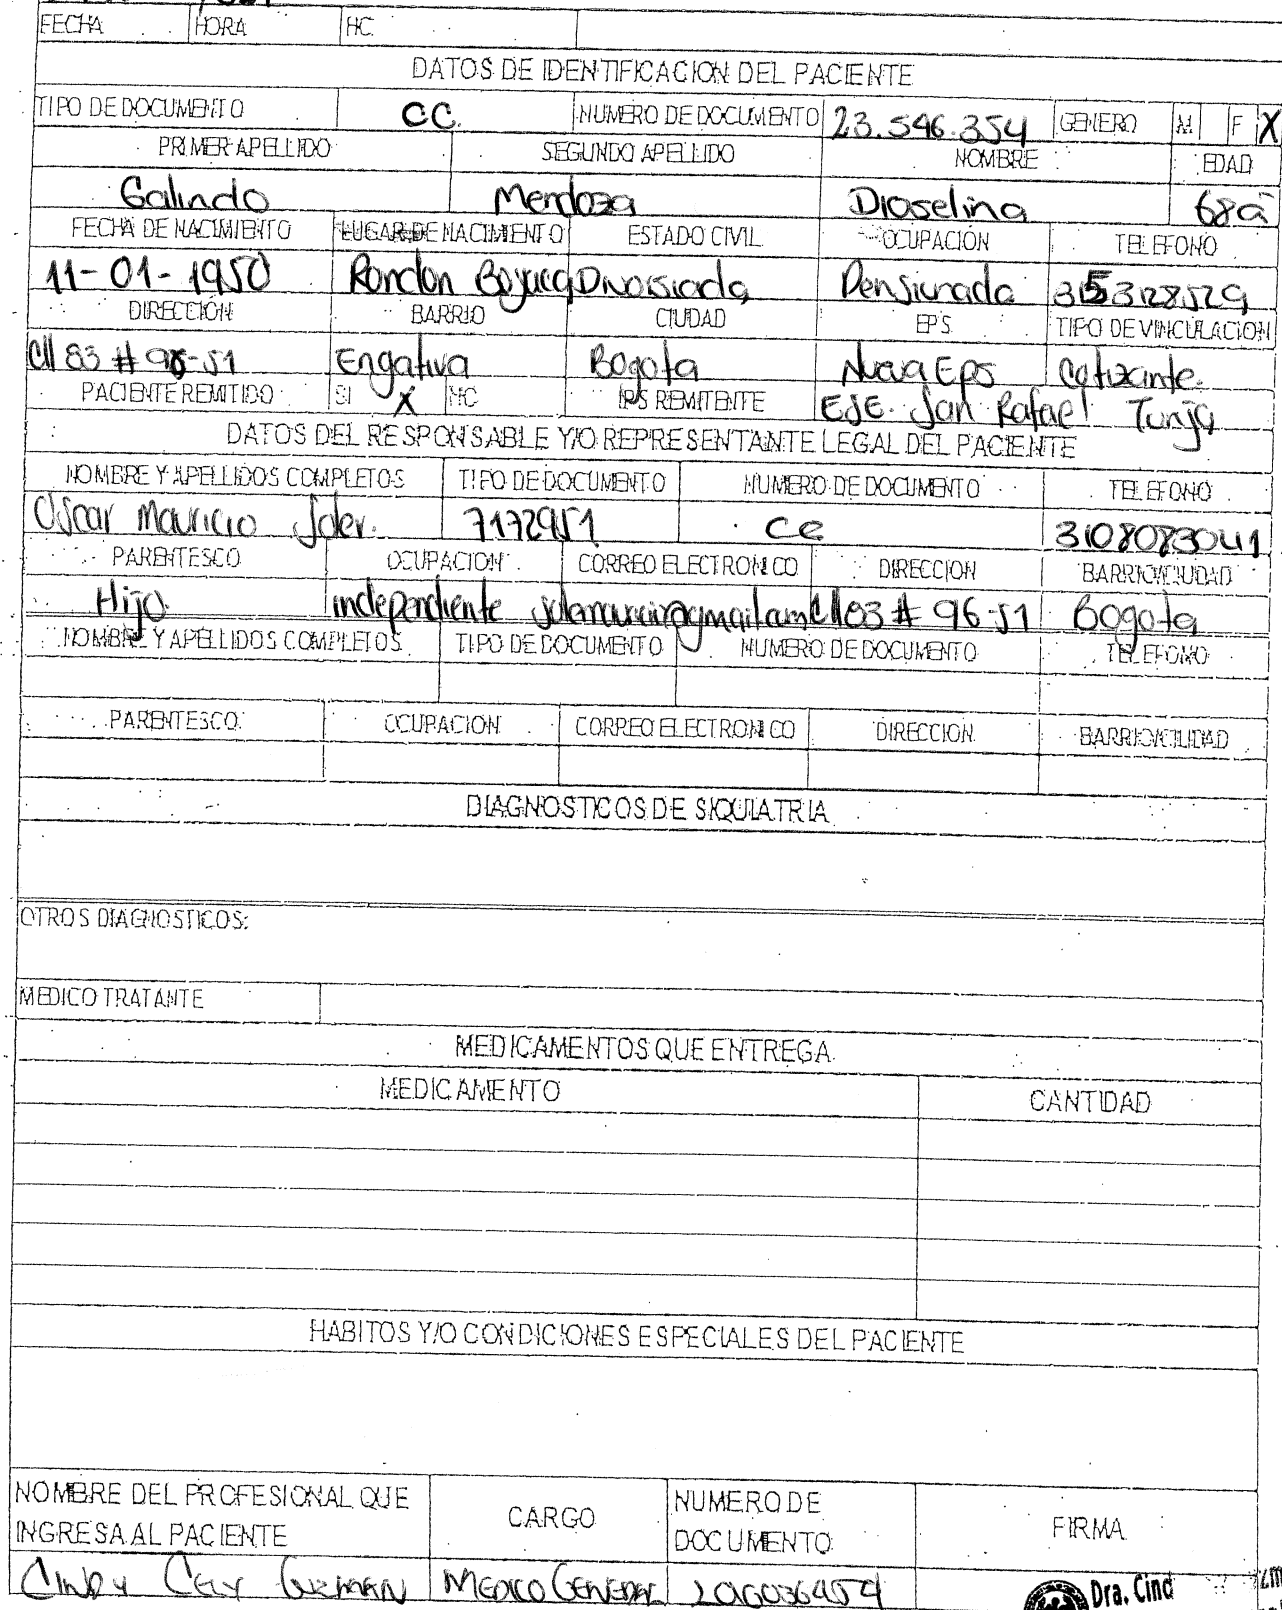 FECHA HORA HC
DATOS DE IDENTIFICACION DEL PACIENTE
TIPO DE DOCUMENTO CC. NUMERO DE DOCUMENTO 23.546.354 GENERO M F X
PRIMER APELLIDO SEGUNDO APELLIDO NOMBRE EDAD
Galindo Mendoza Dioselina 68a
FECHA DE NACIMIENTO LUGAR DE NACIMIENTO ESTADO CIVIL OCUPACIÓN TELEFONO
11-01-1950 Rondon Boyaca Pensiunada 3153128529
DIRECCIÓN BARRIO CIUDAD EPS TIPO DE VINCULACION
Cll 83 # 96-51 Engativa Bogota Nueva Eps Cotizante.
PACIENTE REMITIDO SI X NO IPS REMITENTE ESE. San Rafael Tunja
DATOS DEL RESPONSABLE Y/O REPRESENTANTE LEGAL DEL PACIENTE
NOMBRE Y APELLIDOS COMPLETOS TIPO DE DOCUMENTO NUMERO DE DOCUMENTO TELEFONO
Oscar Mauricio Soler. 7172951 cc 3108083041
PARENTESCO OCUPACION CORREO ELECTRONICO DIRECCION BARRIO/CIUDAD
Hijo independiente Cll 83 # 96-51 Bogota
NOMBRE Y APELLIDOS COMPLETOS TIPO DE DOCUMENTO NUMERO DE DOCUMENTO TELEFONO
PARENTESCO OCUPACION CORREO ELECTRONICO DIRECCION BARRIO/CIUDAD
DIAGNOSTICOS DE SIQUIATRIA
OTROS DIAGNOSTICOS:
MEDICO TRATANTE
MEDICAMENTOS QUE ENTREGA
MEDICAMENTO CANTIDAD
HABITOS Y/O CONDICIONES ESPECIALES DEL PACIENTE
NOMBRE DEL PROFESIONAL QUE CARGO NUMERO DE FIRMA
INGRESA AL PACIENTE DOCUMENTO
Cindy Cely Guzman Medico General
Dra. Cind